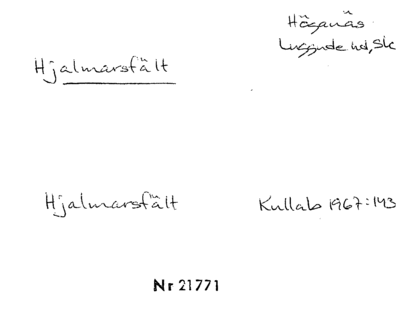 Höganäs
Luggude hd, Sk
Hjalmarsfält
Hjalmarsfält
Kullab 1967:143
Nr 21771